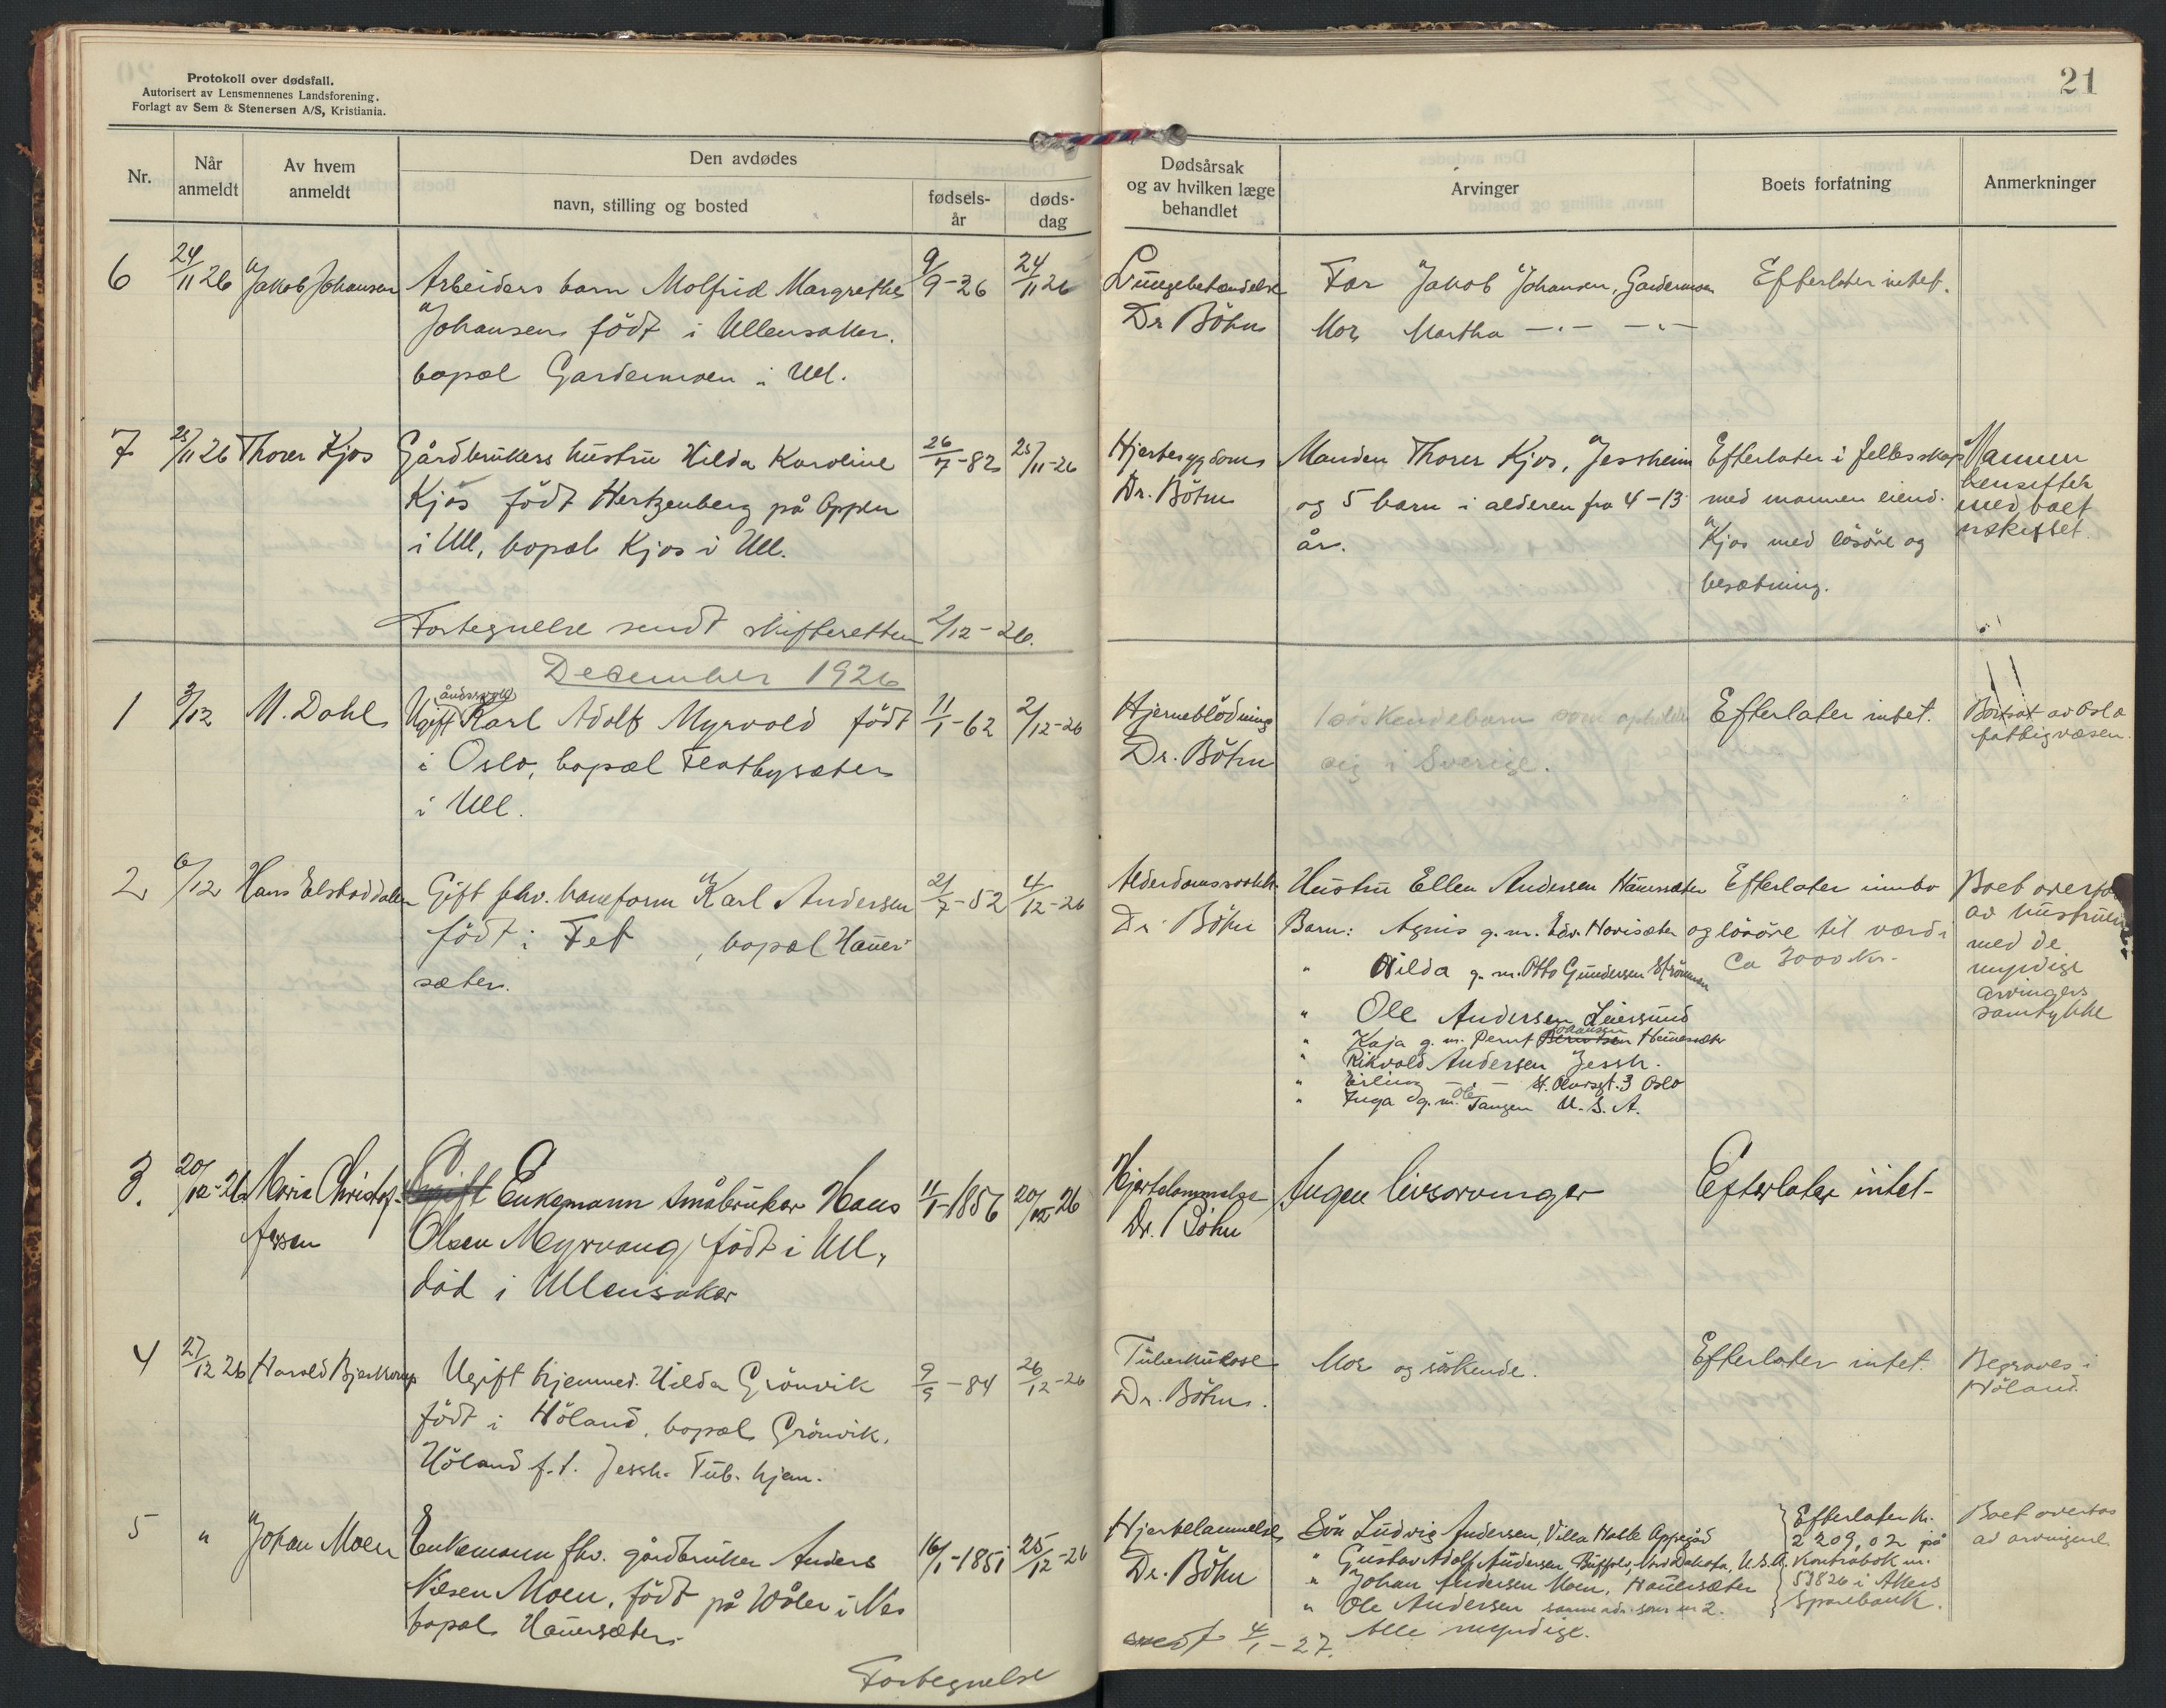 Protokoll over dødsfall.
Autorisert av Lensmennenes Landsforening.
Forlagt av Sem & Stenersen A/S, Kristiania.
Nr.
Når anmeldt
Av hvem anmeldt
Den avdødes
navn, stilling og bosted
fødsels-år
døds-dag
6 24/11 26 Jakob Johansen Arbeiders barn Molfrid Margrethe 9/9-26 24/11 26
Johansen född i Ullensaker.
bopæl Gardermoen i Ull.
7 25/11 26 Thorer Kjos Gårdbrukers hustru Hilda Karoline 26/7-82 25/11-26
Kjos född Hertzenberg på Oppen
i Ull, bopæl Kjos i Ull.
Fortegnelse sendt skifteretten 2/12-26.
December 1926
åndssvak
1 3/12 M. Dahl Ugift Karl Adolf Myrvold född 11/1-62 2/12-26
i Oslo, bopæl Flatbysæter
i Ull.
2 6/12 Hans Elstaddalen Gift fhv. baneform Karl Andersen 21/7-52 4/12-26
född i Fet, bopæl Hauer-
sæter.
3. 20/12-26 Maria Christof- Enkemann småbruker Hans 11/1-1856 20/12 26
fersen Olsen Myrvang, född i Ull,
död i Ullensaker
4 27/12 26 Harald Bjerknes Ugift hjemmev. Hilda Grönvik 9/9-84 26/12-26
född i Höland, bopæl Grönvik,
Höland f.t. Jessh. Tub. hjem.
5 " Johan Moen Enkemann fhv. gårdbruker Anders 16/1-1851 25/12-26
Nilsen Moen, född på Wåler i Nes
bopæl Hauersæter.
Fortegnelse
21
Dødsårsak og av hvilken læge behandlet
Arvinger
Boets forfatning
Anmerkninger
Lungebetændelse Far Jakob Johansen, Gardermoen Efterlater intet.
Dr Böhn Mor Martha —"— —"—
Hjertesygdom Manden Thorer Kjos, Jessheim Efterlater i fellesskap Mannen
Dr. Böhn og 5 barn i alderen fra 4-13 med mannen eiend. hensitter
år. Kjos med lösöre og med boet
besætning. uskiftet.
Hjerneblödning 1 söskendebarn som opholder Efterlater intet. av Oslo
Dr. Böhn sig i Sverige. fattigvæsen.
Alderdomssvakh. Hustru Ellen Andersen Hauersæter Efterlater innbo Boet overtas
Dr Böhn Barn: Agnes g.m. Edv. Hovisæter og lösöre til værdi av hustruen
" Hilda g.m. Otto Gundersen Strömmen Ca 3000 Kr. med de
" Ole Andersen Leirsund myndige
Johansen
" Kaja g.m. Bernt Berntsen Hauersæter arvingers
" Rikvald Andersen Jessh. samtykke
" Erling —"— St. Olavsgt. 3 Oslo
" Inga g.m. Ole Tangen U.S.A.
Hjertelammelse Ingen livsarvinger Efterlater intet-
Dr. Böhn
Tuberkulose Mor og söskende. Efterlater intet. Begraves i
Dr. Böhn. Höland.
Hjertelammelse Sön Ludvig Andersen, Villa Halle Oppegård Efterlater Kr. Boet overtas
Dr. Böhn " Gustav Adolf Andersen, Buffalo, Nord Dakota, U.S.A. 2209,02 på av arvingene.
" Johan Andersen Moen, Hauersæter Kontrabok nr.
" Ole Andersen samme adr. som nr 2. 53826 i Akers
Sparebank.
sendt 4/1-27. Alle myndige.